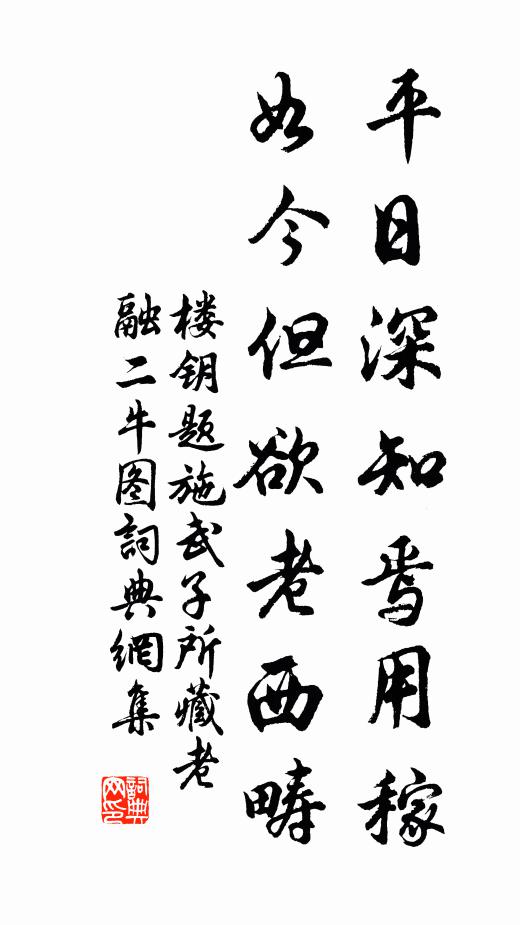 平日深知焉用稼
如今但欲老西畴
楼钥题施武子所藏老
融二牛图詞典網集
詞典网印